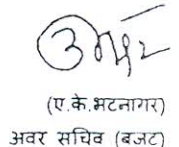 (ए.के.भटनागर)
अवर सचिव (बजट)